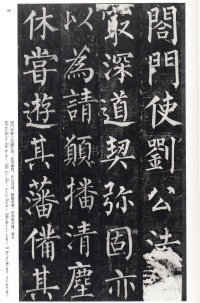 閤門使劉公法
最深道契弥固亦
以為請願播清塵
休甞遊其藩備其